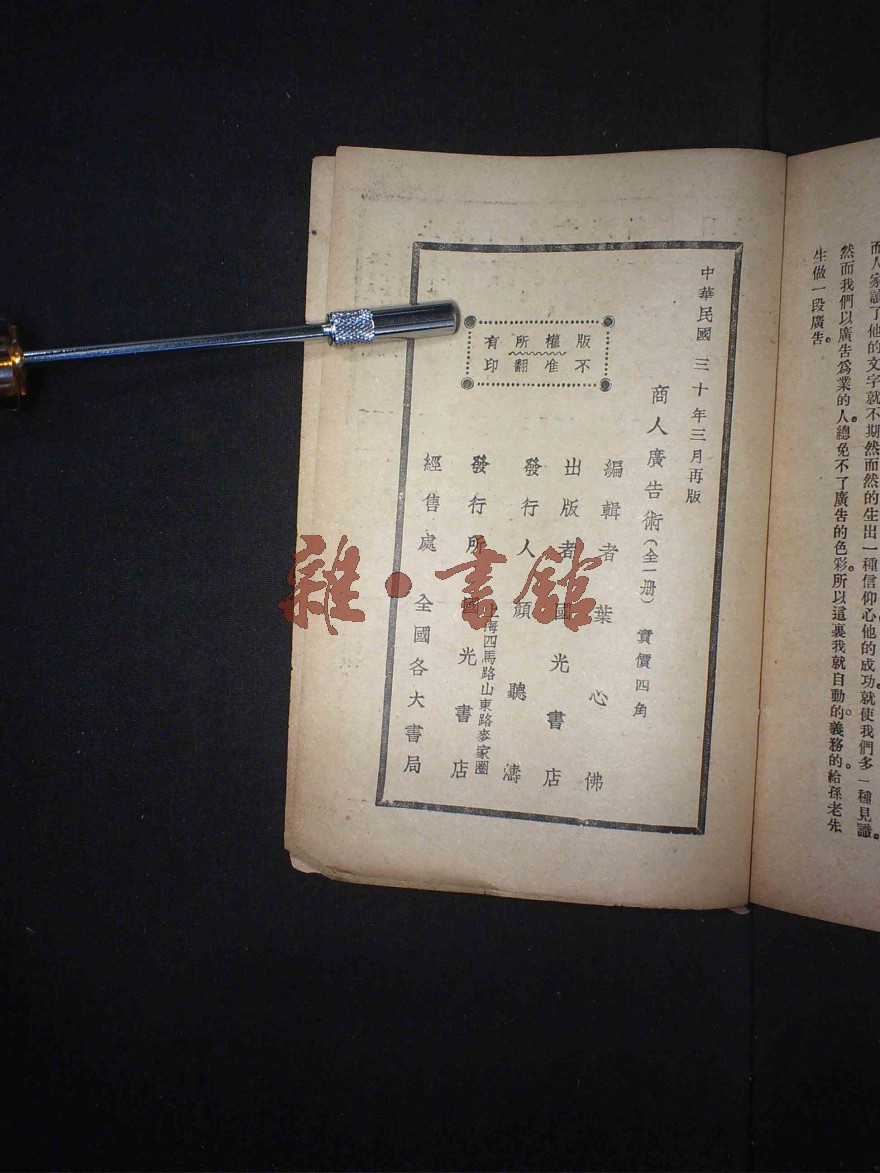 而人家讀了他的文字就不期然而然的生出一種信仰心他的成功。就使我們多一種見識。
然而我們以廣告爲業的人。總免不了廣告的色彩。所以這裏我就自動的。義務的。給孫老先
生做一段廣告。
中華民國三十年三月再版
版權所有
不准翻印
商人廣告術(全一册) 實價四角
編輯者 葉心佛
出版者 國光書店
發行人 顏聽濤
上海四馬路山東路麥家圈
發行所 國光書店
經售處 全國各大書局
雜·書館